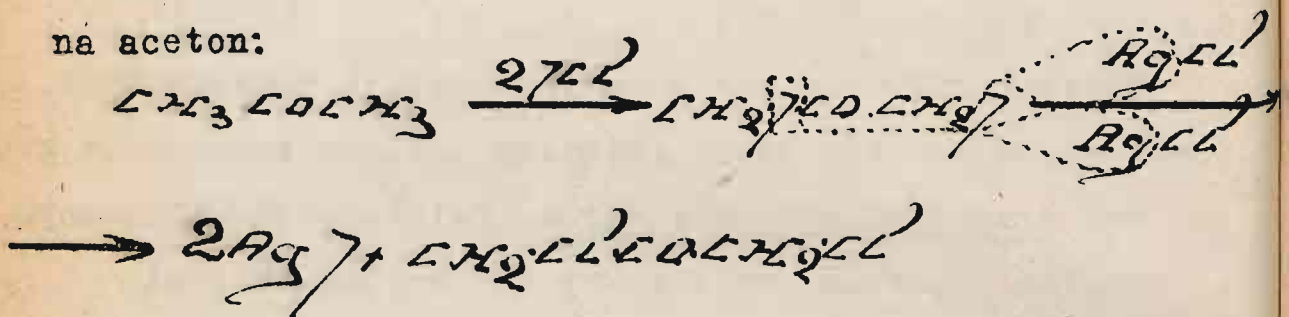 na aceton:
CH₃COCH₃ 2JCl → CH₂JCO.CH₂J AgCl AgCl →
→ 2AgJ + CH₂ClCOCH₂Cl